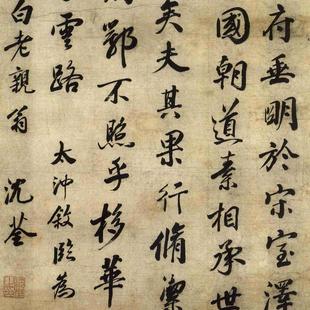 府垂明於宋室澤
國朝道素相承世
矣夫其果行脩潔
鄂不照乎移華
雲路 太沖敘臨為
白老親翁 沈荃